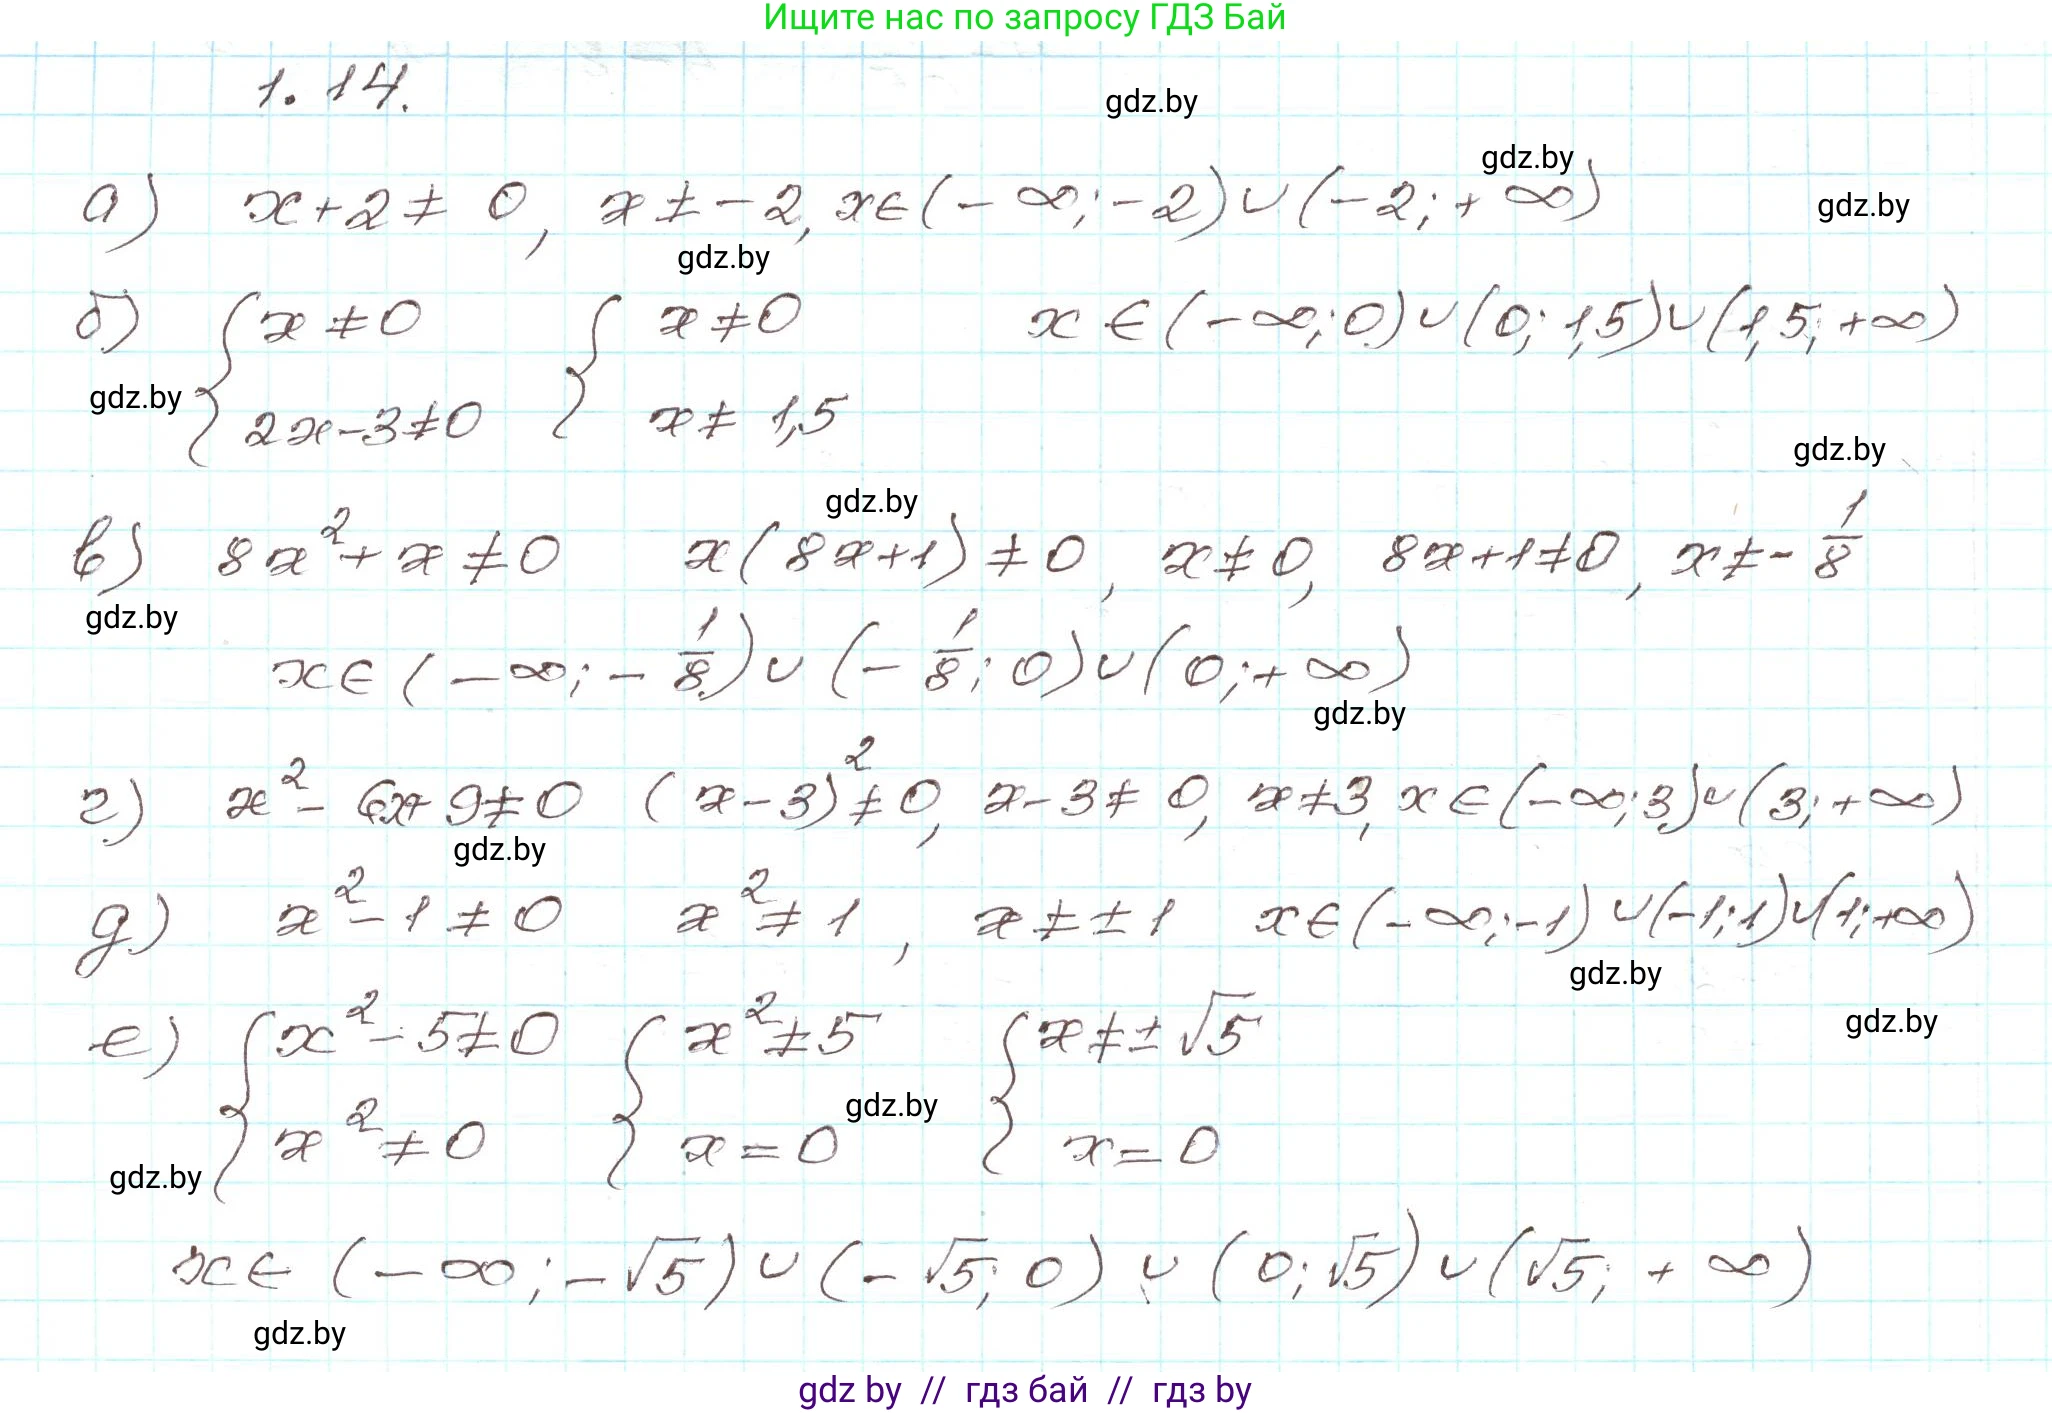 Ищите нас по запросу ГДЗ Бай
1.14.
gdz.by
gdz.by
а) x+2≠0, x≠-2, x∈(-∞;-2)∪(-2;+∞)
gdz.by
gdz.by
б) { x≠0 { x≠0 x∈(-∞;0)∪(0;1,5)∪(1,5;+∞)
gdz.by
2x-3≠0 x≠1,5
gdz.by
gdz.by
в) 8x²+x≠0 x(8x+1)≠0, x≠0, 8x+1≠0, x≠-1/8
gdz.by
x∈(-∞;-1/8)∪(-1/8;0)∪(0;+∞)
gdz.by
г) x²-6x+9≠0 (x-3)²≠0, x-3≠0, x≠3, x∈(-∞;3)∪(3;+∞)
gdz.by
д) x²-1≠0 x²≠1, x≠±1 x∈(-∞;-1)∪(-1;1)∪(1;+∞)
gdz.by
gdz.by
е) { x²-5≠0 { x²≠5 { x≠±√5
gdz.by
x²≠0 x=0 x=0
gdz.by
x∈(-∞;-√5)∪(-√5;0)∪(0;√5)∪(√5;+∞)
gdz.by
gdz by // гдз бай // гдз by